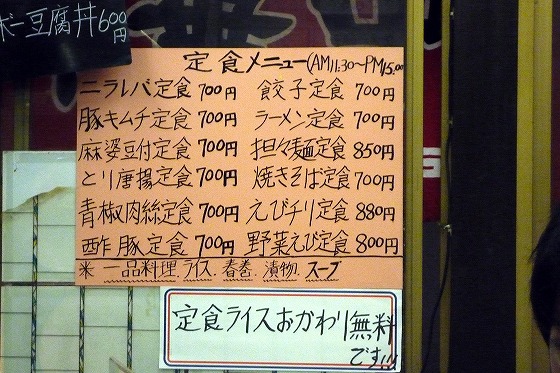 ボー豆腐丼600円
定食メニュー(AM11:30〜PM15:00
ニラレバ定食 700円 餃子定食 700円
豚キムチ定食 700円 ラーメン定食 700円
麻婆豆付定食 700円 担々麺定食 850円
とり唐揚定食 700円 焼きそば定食 700円
青椒肉絲定食 700円 えびチリ定食 880円
酢豚定食 700円 野菜えび定食 800円
※ 一品料理.ライス.春巻.漬物.スープ
定食ライスおかわり無料
です!!!